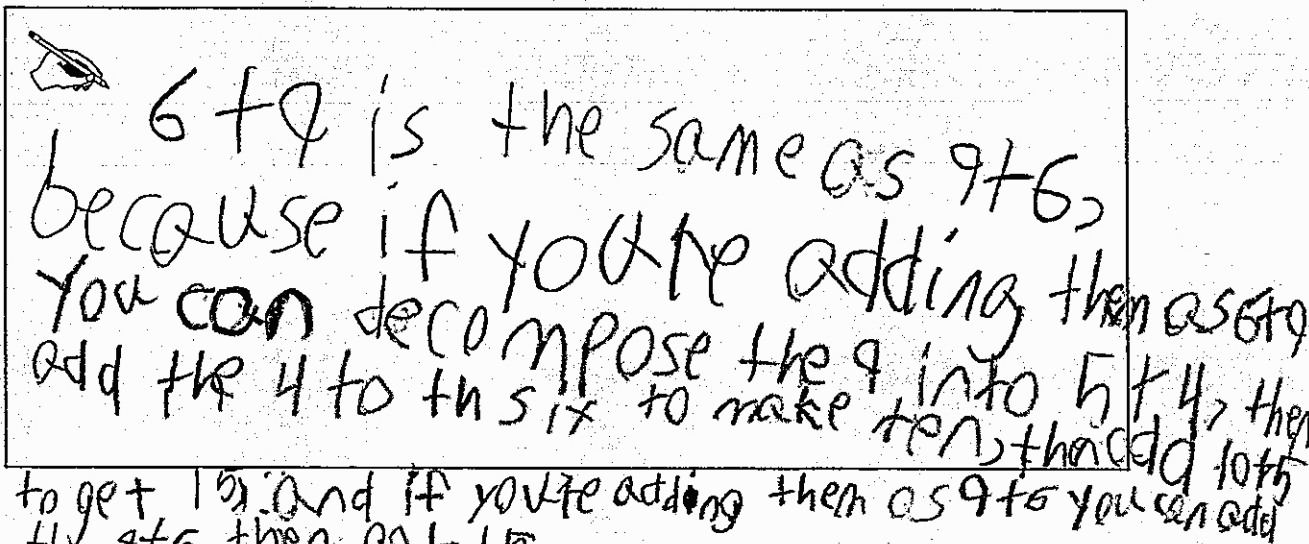 6+9 is the same as 9+6,
because if you're adding them as 6+9
you can decompose the 9 into 5+4, then
add the 4 to th six to make ten, then add 10+5
to get 15. and if you're adding them as 9+6 you can add
9+6 then